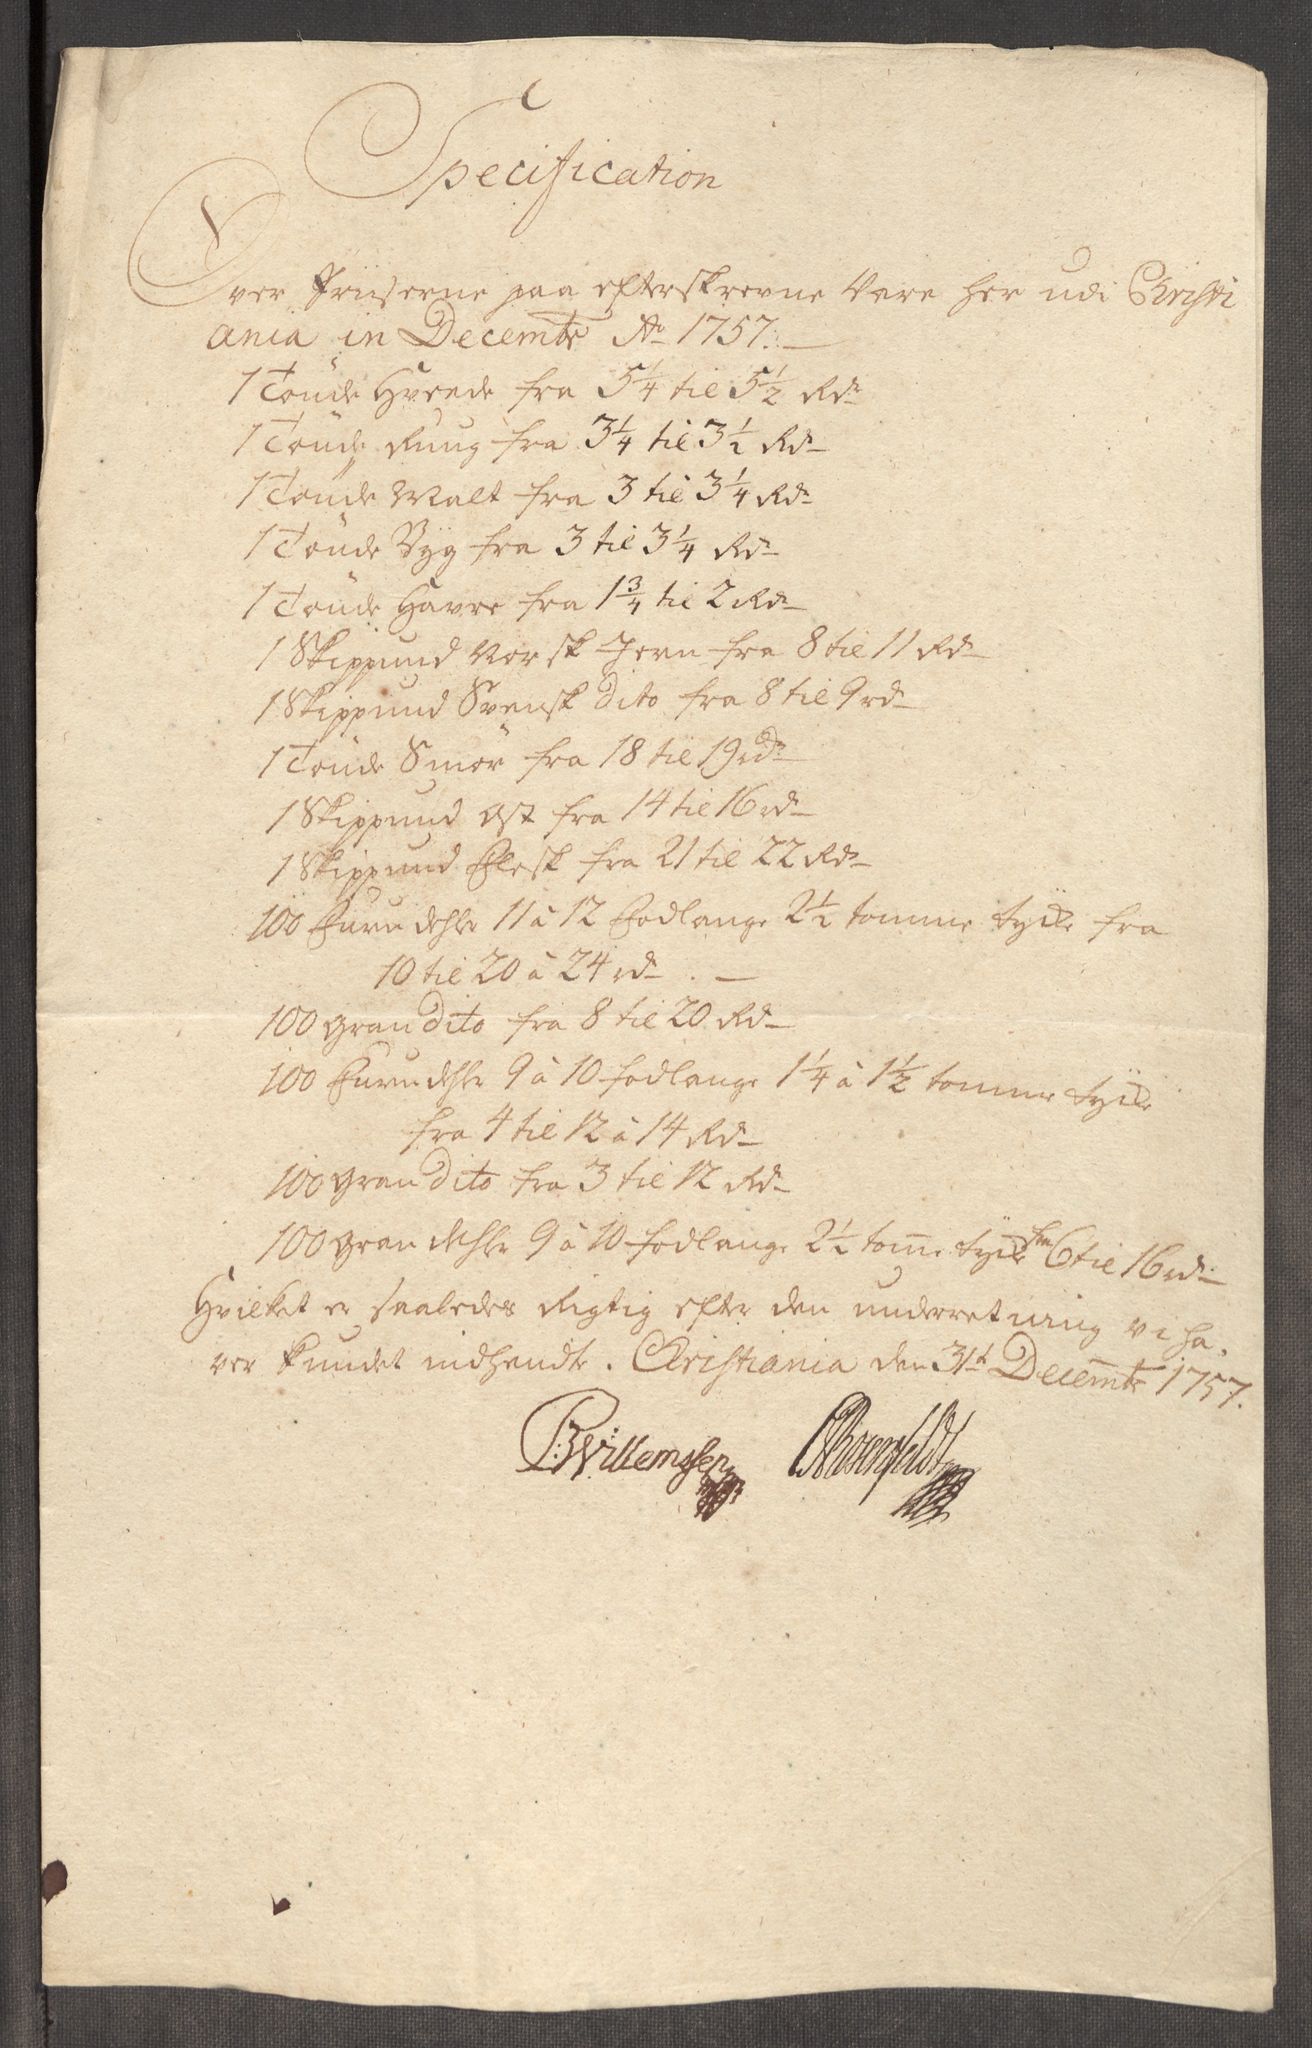 Specification
Over Priiserne paa efterskrevne Vare her udi Christi
ania in Decembr Ao 1757.
1 Tönde Hvede fra 5 1/4 til 5 1/2 Rdr
1 Tönde Ruug fra 3 1/4 til 3 1/2 Rdr
1 Tönde Malt fra 3 til 3 1/4 Rdr
1 Tönde Byg fra 3 til 3 1/4 Rdr
1 Tönde Havre fra 1 3/4 til 2 Rdr
1 Skippund Norsk Jern fra 8 til 11 Rdr
1 Skippund Svensk Dito fra 8 til 9 rdr
1 Tönde Smör fra 18 til 19 rdr
1 Skippund Ost fra 14 til 16 rdr
1 Skippund Flesk fra 21 til 22 Rdr
100 Furu dehler 11 à 12 Fodlange 2 1/2 tomme tycke fra
10 til 20 à 24 rdr
100 gran Dito fra 8 til 20 Rdr
100 Furu dehler 9 à 10 fodlange 1 1/4 à 1 1/2 tomme tycke
fra 4 til 12 à 14 Rdr
100 gran Dito fra 3 til 12 Rdr
100 gran dehler 9 à 10 fodlange 2 1/2 tomme tycke fra 6 til 16 rdr
Hvilket er saaledes Rigtig efter den underretning vi ha,
ver kundet indhendte. Christiania den 31te Decembr 1757.
Willemssen